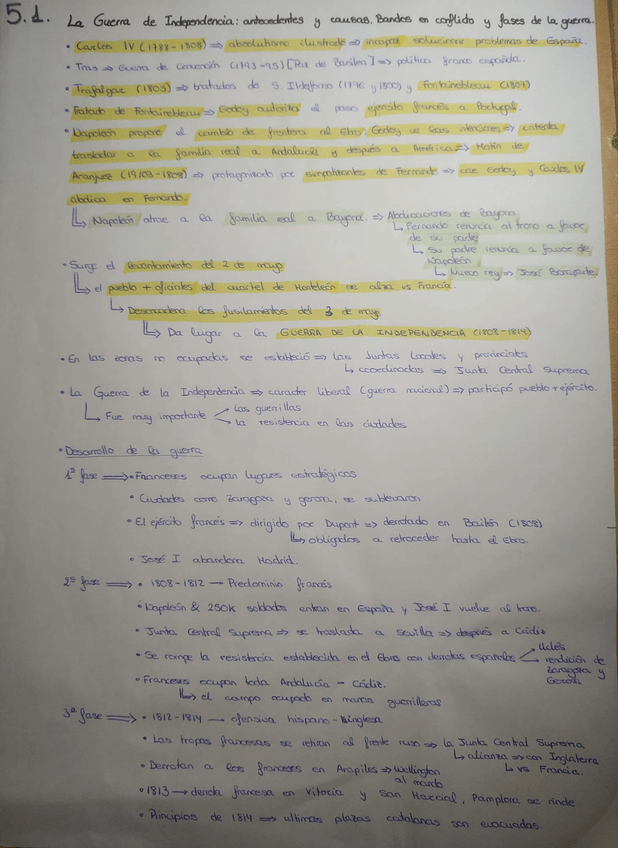 5.1. La Guerra de Independencia: antecedentes y causas. Bandos en conflicto y fases de la guerra.
• Carlos IV (1788-1808) ⇒ absolutismo ilustrado ⇒ incapaz solucionar problemas de España.
• Tras ⇒ Guerra de Convención (1793-95) [Paz de Basilea] ⇒ política franco española.
• Trafalgar (1805) ⇒ tratados de S. Ildefonso (1796 y 1800) y Fontainebleau (1807)
• Tratado de Fontainebleau ⇒ Godoy autoriza el paso ejército francés a Portugal.
• Napoleón propone el cambio de frontera al Ebro. Godoy ve las intenciones ⇒ intenta
trasladar a la familia real a Andalucía y después a América ⇒ Motín de
Aranjuez (19/03-1808) ⇒ protagonizado por simpatizantes de Fernando ⇒ cae Godoy y Carlos IV
abdica en Fernando.
↳ Napoleón atrae a la familia real a Bayona. ⇒ Abdicaciones de Bayona
↳ Fernando renuncia al trono a favor
de su padre
↳ Su padre renuncia a favor de
Napoleón
↳ Nuevo rey ⇒ José Bonaparte
• Surge el levantamiento del 2 de mayo
↳ el pueblo + oficiales del cuartel de Monteleón se alza vs Francia.
↳ Desencadena los fusilamientos del 3 de mayo
↳ Da lugar a la GUERRA DE LA INDEPENDENCIA (1808-1814)
• En las zonas no ocupadas se estableció ⇒ Las Juntas Locales y provinciales
↳ coordinadas ⇒ Junta Central Suprema
• La Guerra de la Independencia ⇒ caracter liberal (guerra nacional) ⇒ participó pueblo + ejército.
↳ Fue muy importante
las guerrillas
la resistencia en las ciudades
• Desarrollo de la guerra
1ª fase ⇒ • Franceses ocupan lugares estratégicos
• Ciudades como Zaragoza y gerona, se sublevaron
• El ejército francés ⇒ dirigido por Dupont ⇒ derrotado en Bailén (1808)
↳ obligados a retroceder hasta el Ebro.
• José I abandona Madrid.
2ª fase ⇒ • 1808-1812 — Predominio francés
• Napoleón & 250k soldados entran en España y José I vuelve al trono.
• Junta Central Suprema ⇒ se traslada a Sevilla ⇒ después a Cádiz
• Se rompe la resistencia establecida en el Ebro con derrotas españolas
Uclés
rendición de
Zaragoza y
Gerona
• Franceses ocupan toda Andalucía - Cádiz.
↳ el campo ocupado en manos guerrilleros
3ª fase ⇒ • 1812-1814 — ofensiva hispano-inglesa
• Las tropas francesas se retiran al frente ruso ⇒ la Junta Central Suprema
↳ alianza ⇒ con Inglaterra
↳ vs Francia.
• Derrotan a los franceses en Arapiles ⇒ Wellington
al mando
• 1813 → derrota francesa en Vitoria y San Marcial, Pamplona se rinde
• Principios de 1814 ⇒ ultimas plazas catalanas son evacuadas.